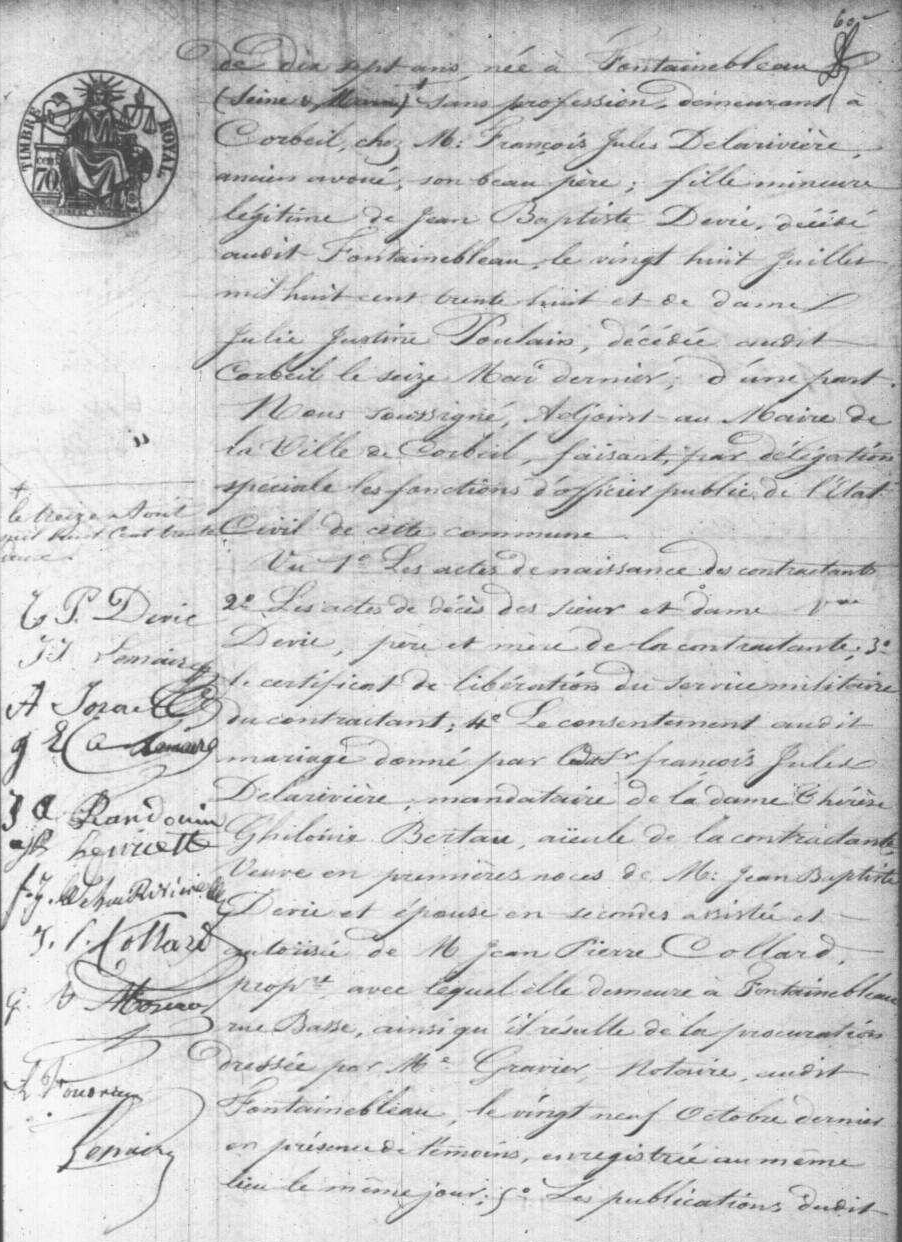 60
de dix sept ans, née à Fontainebleau
(Seine & Marne) + sans profession, demeurant à
Corbeil, chez M: François Jules Delarivière,
ancien avoué, son beau père; fille mineure
légitime de Jean Baptiste Devie, décédé
audit Fontainebleau, le vingt huit Juillet
mil huit cent trente huit et de dame
Julie Justine Poulain, décédée audit
Corbeil le seize Mai dernier; d'une part.
Nous soussigné, Adjoint au Maire de
la Ville de Corbeil, faisant, par délégation
spéciale les fonctions d'officier public de l'Etat
Civil de cette commune
Vu 1º Les actes de naissance des contractants
2º Les actes de décès des sieur et dame
Devie, père et mère de la contractante; 3º
le certificat de libération du service militaire
du contractant; 4º Le consentement audit
mariage donné par françois Jules
Delarivière, mandataire de la dame Thérèse
Ghiloine Bertau, aïeule de la contractante
Veuve en premières noces de M: Jean Baptiste
Devie et épouse en secondes assistée et
autorisée de M Jean Pierre Collard,
propre. avec lequel elle demeure à Fontainebleau
rue Basse, ainsi qu'il résulte de la procuration
dressée par Me Gravier, Notaire, audit
Fontainebleau, le vingt neuf Octobre dernier
en présence de témoins, enregistrée au même
lieu le même jour; 5º Les publications dudit
TIMBRE ROYAL
70
+
le treize Aout
mil huit Cent trente
deux
P. Devie
J J Lemaire
A
Lemaire
J A Randouin
henriette
f. j. delaRivière
J. P. Collard
G. V
Lemaire